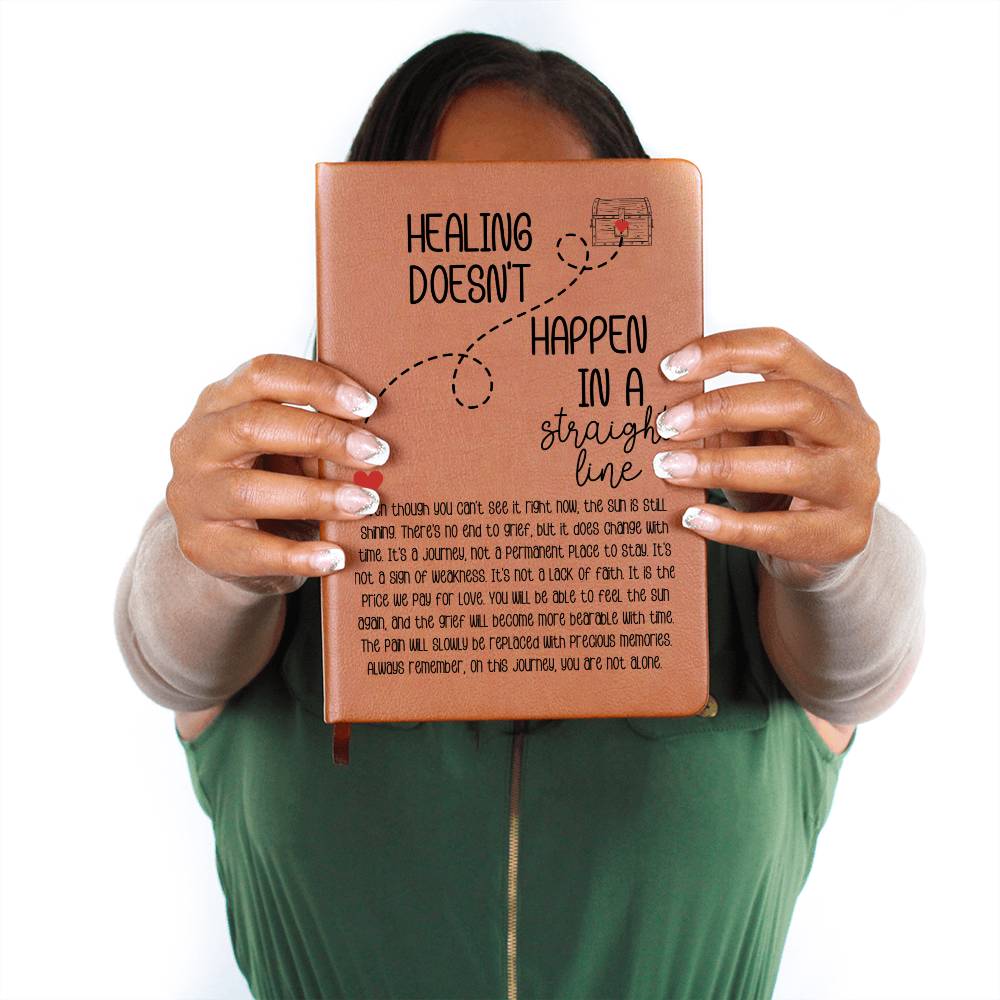 HEALING
DOESN'T
HAPPEN
IN A
straigh
line
n though you can't see it right now, the sun is still
shining. There's no end to grief, but it does change with
time. It's a journey, not a permanent place to stay. It's
not a sign of weakness. It's not a lack of faith. It is the
price we pay for love. You will be able to feel the sun
again, and the grief will become more bearable with time.
The pain will slowly be replaced with precious memories.
Always remember, on this journey, you are not alone.